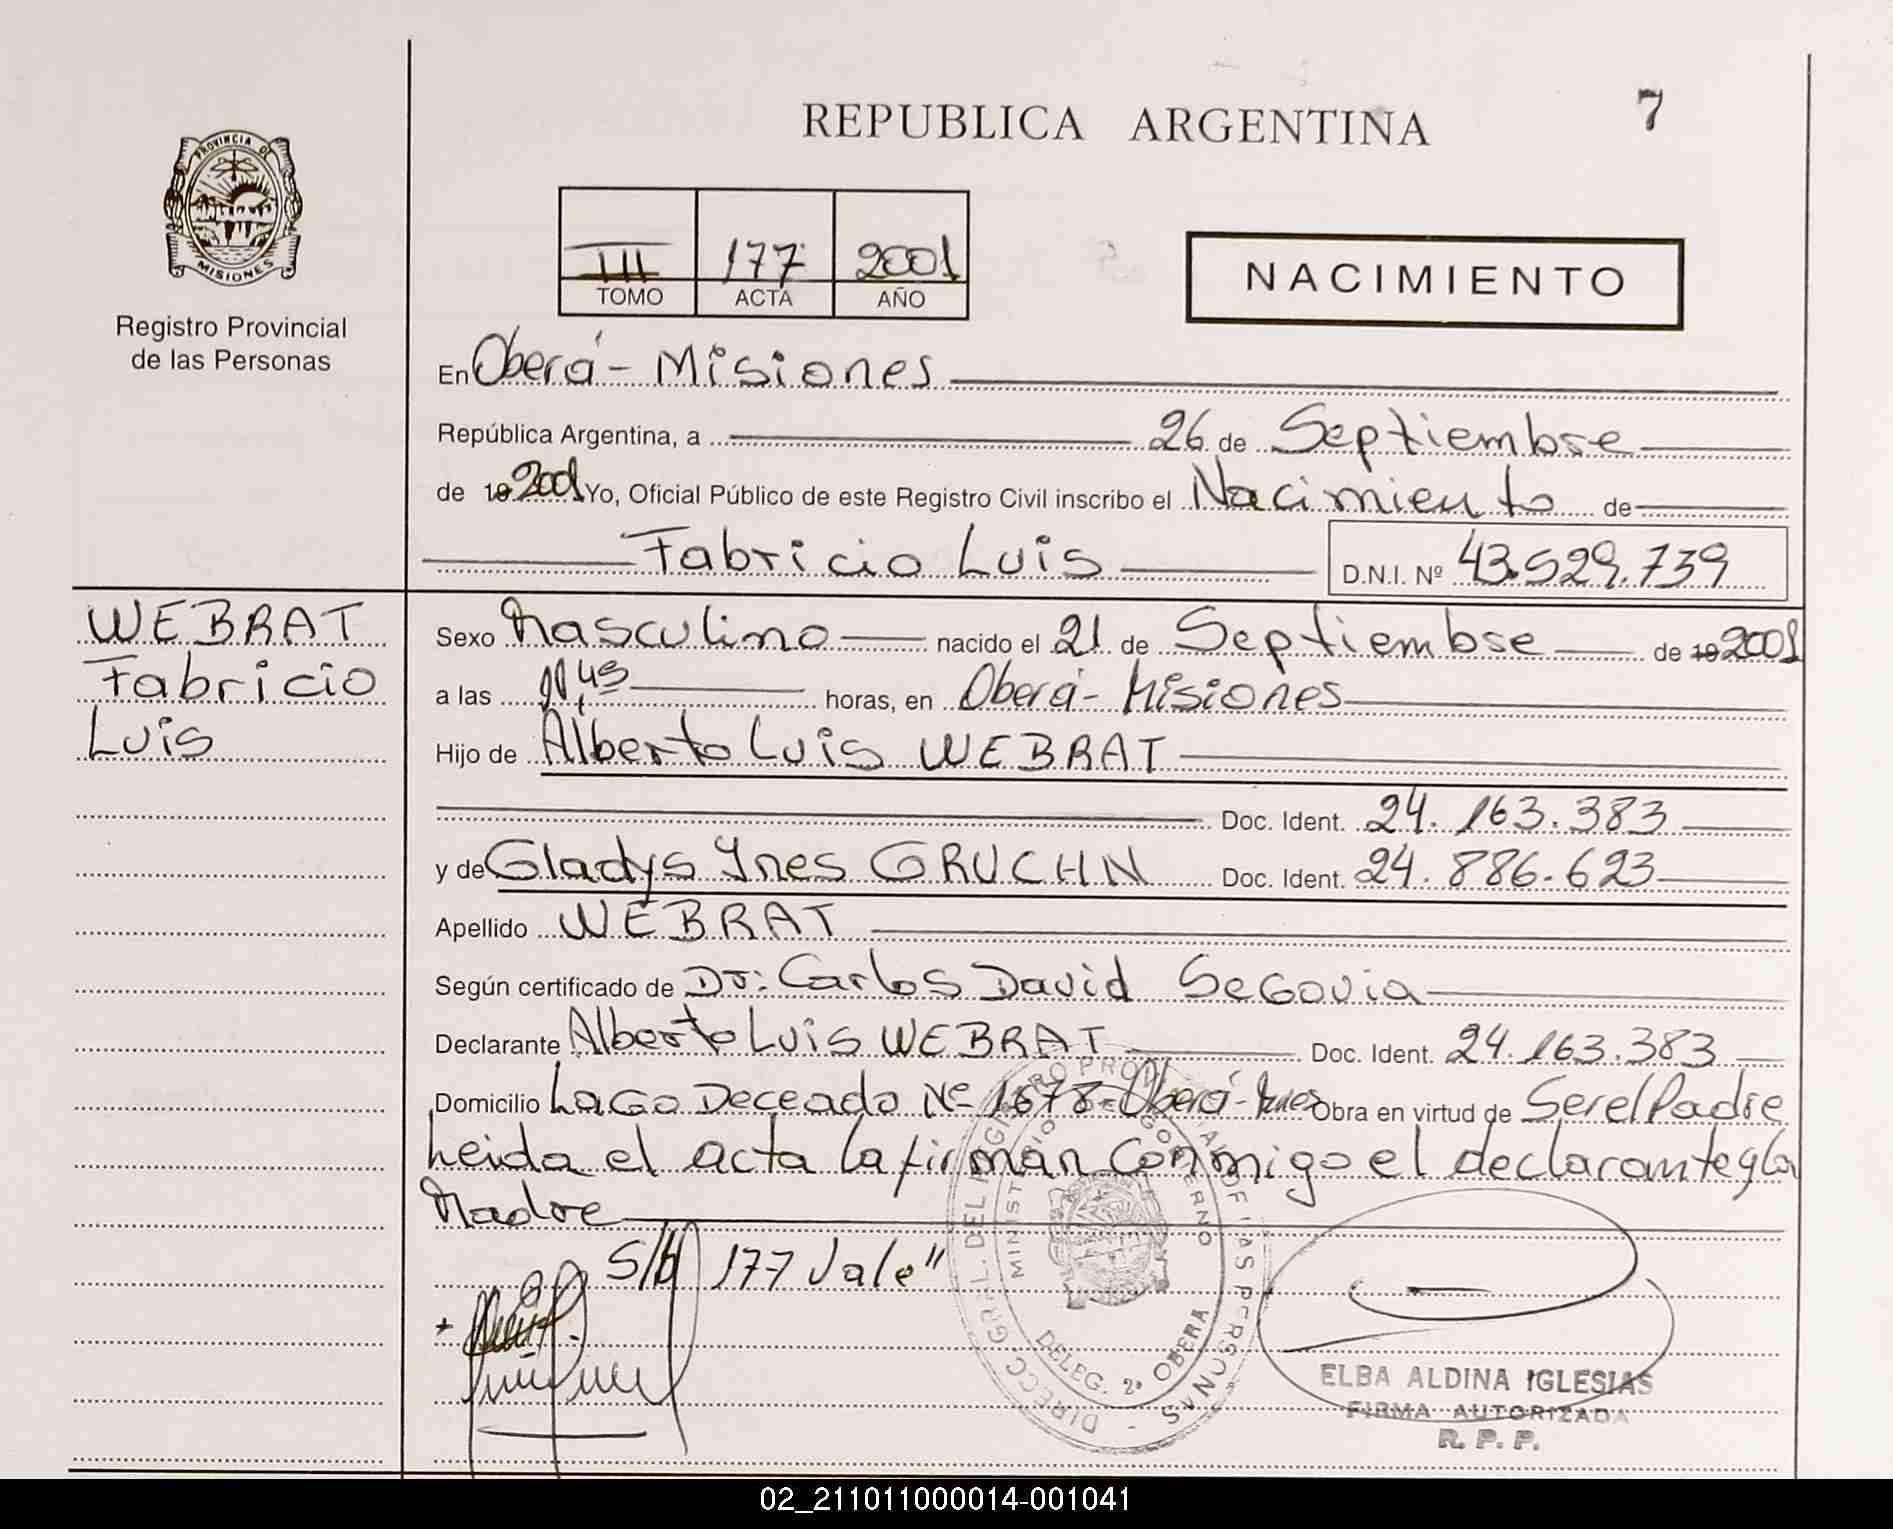 REPUBLICA ARGENTINA
7
PROVINCIA DE
MISIONES
Registro Provincial
de las Personas
III 177 2001
TOMO ACTA AÑO
NACIMIENTO
En Oberá - Misiones
República Argentina, a 26 de Septiembre
de 19 2001 Yo, Oficial Público de este Registro Civil inscribo el Nacimiento de
Fabricio Luis D.N.I. Nº 43.529.739
WEBRAT
Fabricio
Luis
Sexo Masculino nacido el 21 de Septiembre de 19 2001
a las horas, en Oberá - Misiones
Hijo de Alberto Luis WEBRAT
Doc. Ident. 24.163.383
y de Gladys Ynes GRUCHN Doc. Ident. 24.886.623
Apellido WEBRAT
Según certificado de Dr: Carlos David Segovia
Declarante Alberto Luis WEBRAT Doc. Ident. 24.163.383
Domicilio Lago Deceado Nº 1678 - Oberá - Mnes Obra en virtud de Ser el Padre
Leida el acta la firman conmigo el declarante y la
Madre
S/b 177 Vale"
DIRECC. GRAL. DEL REGISTRO PROVINCIAL DE LAS PERSONAS
MINISTERIO GOBIERNO
DELEG. 2ª OBERA
ELBA ALDINA IGLESIAS
FIRMA AUTORIZADA
R. P. P.
02_211011000014-001041